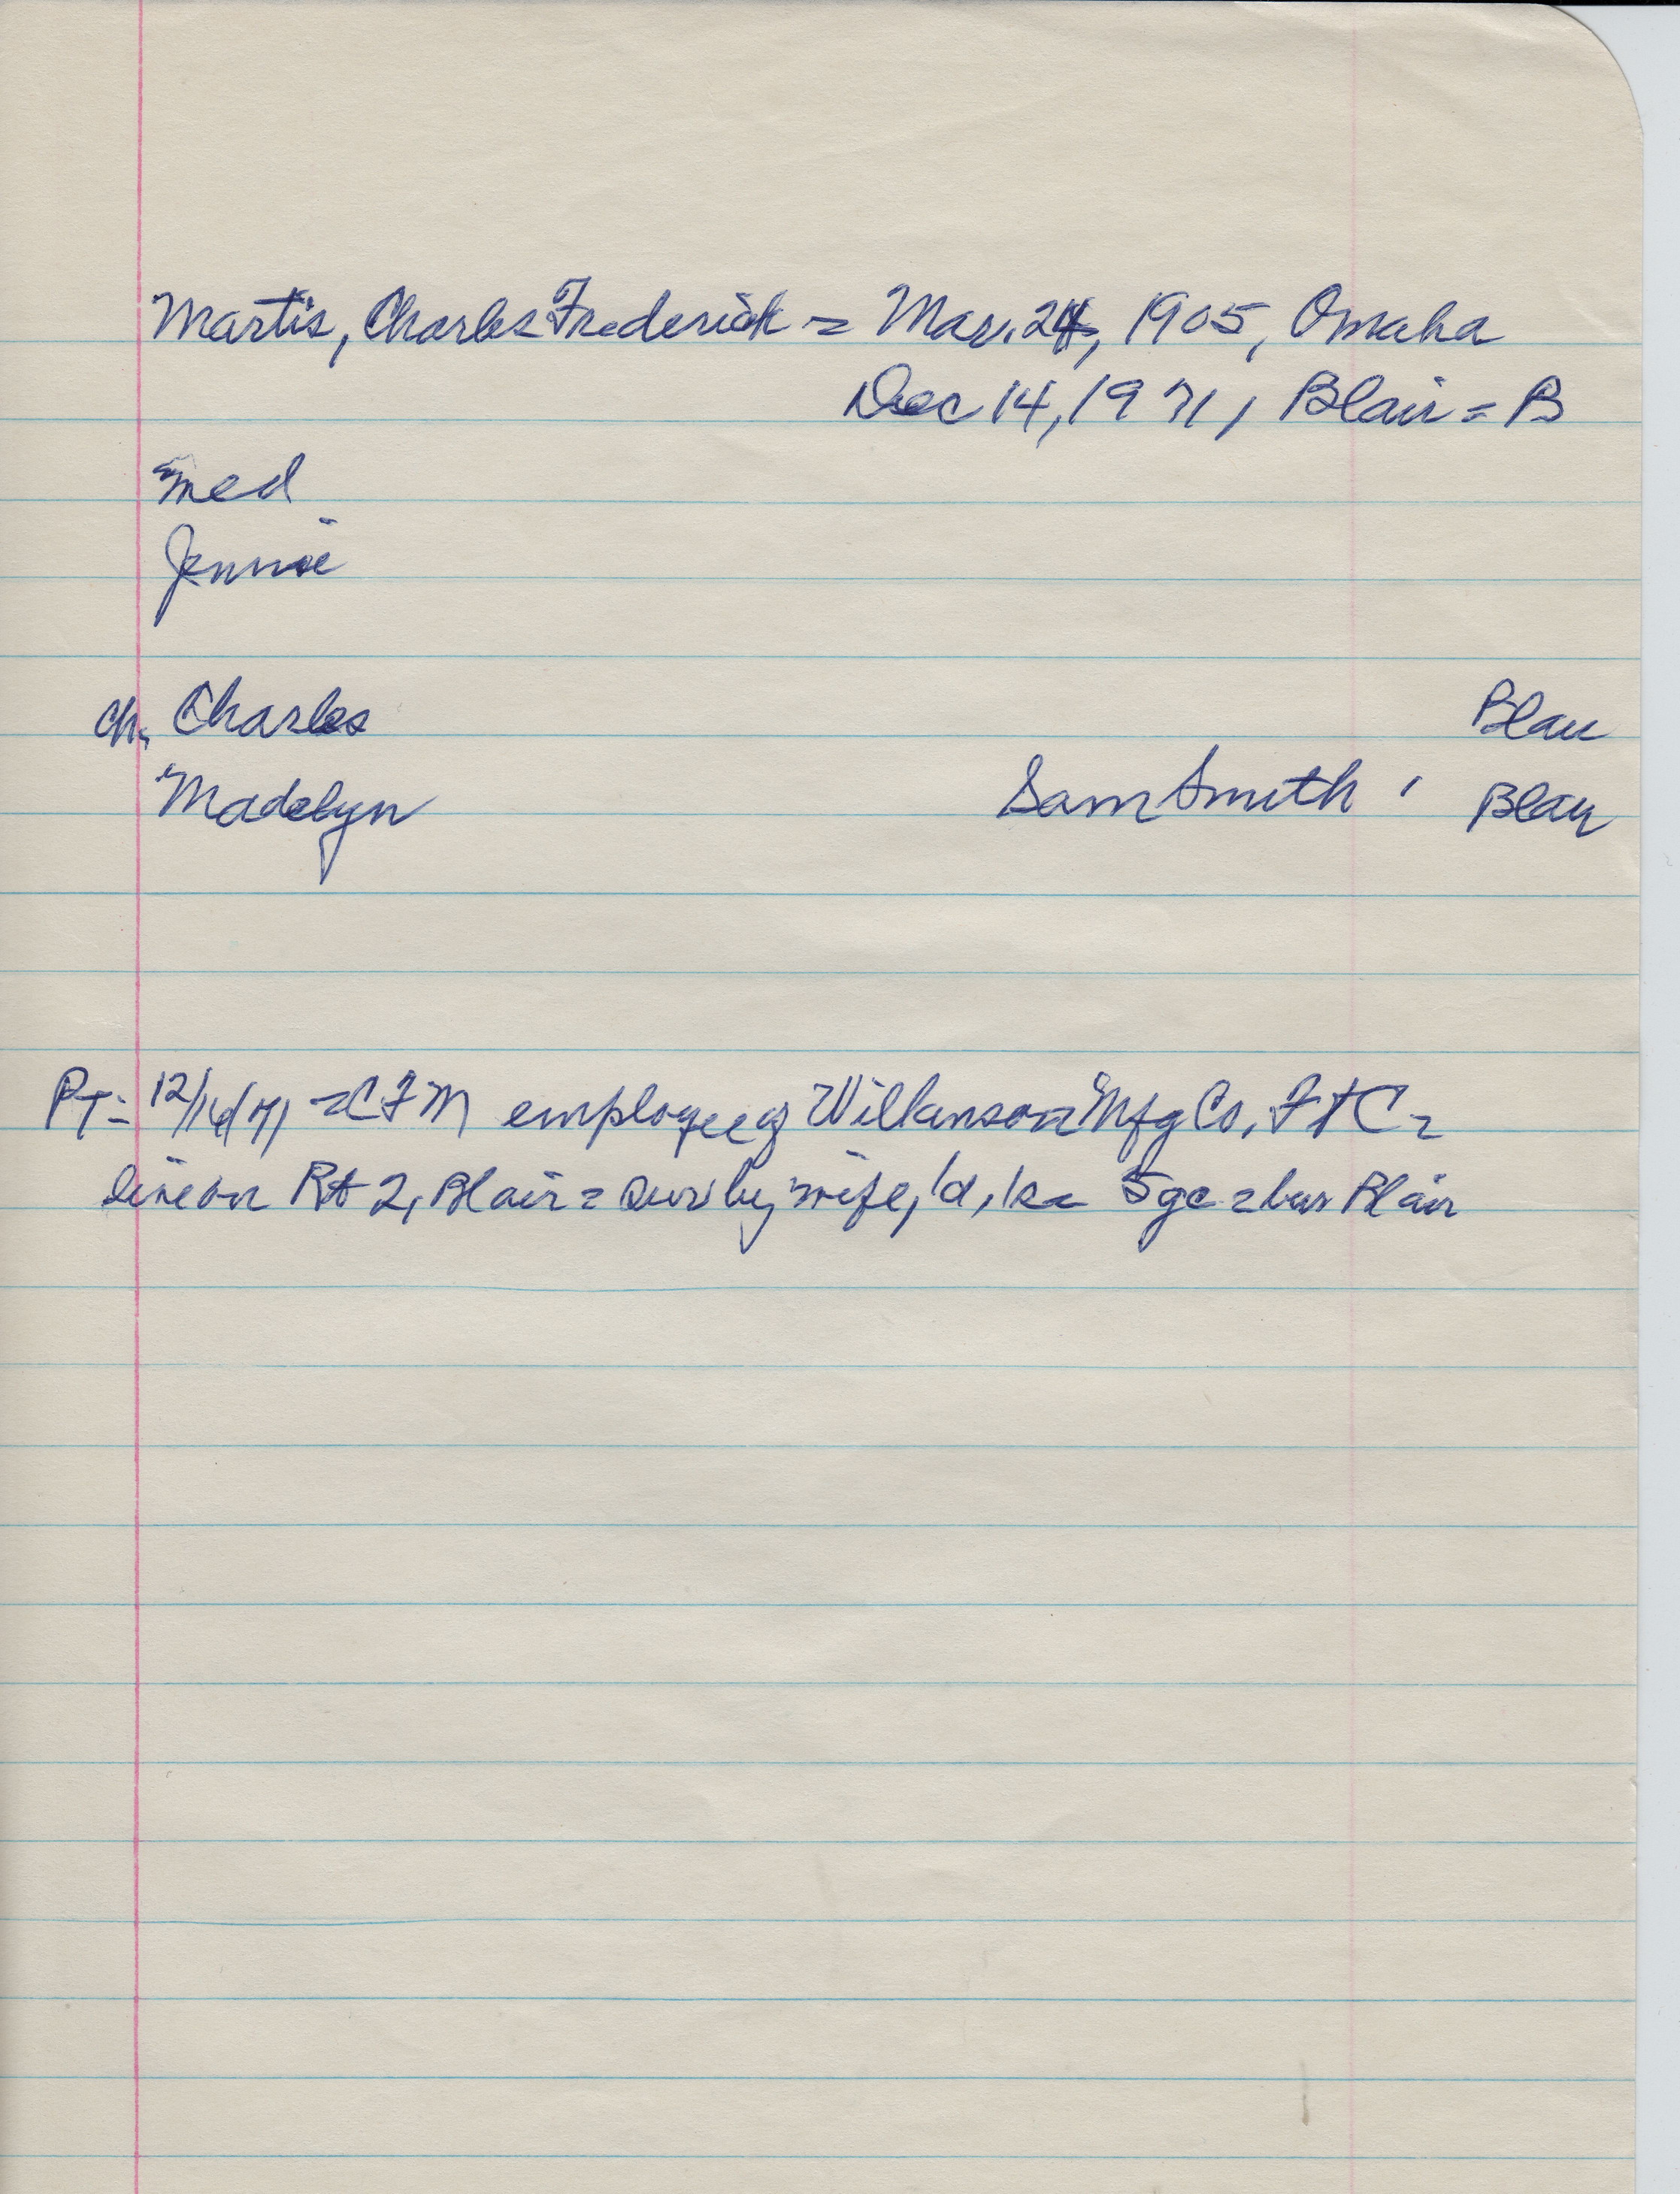 Martis, Charles Frederick = Mar. 24, 1905, Omaha
Dec 14, 1971, Blair = B
med
Jennie
ch. Charles Blair
Madelyn Sam Smith, Blair
PT = 12/16/71 = CFM employee of Wilkinson Mfg Co, Ft C =
live on Rt 2, Blair = surv by wife, 1d, 1s = 5 gc = bur Blair